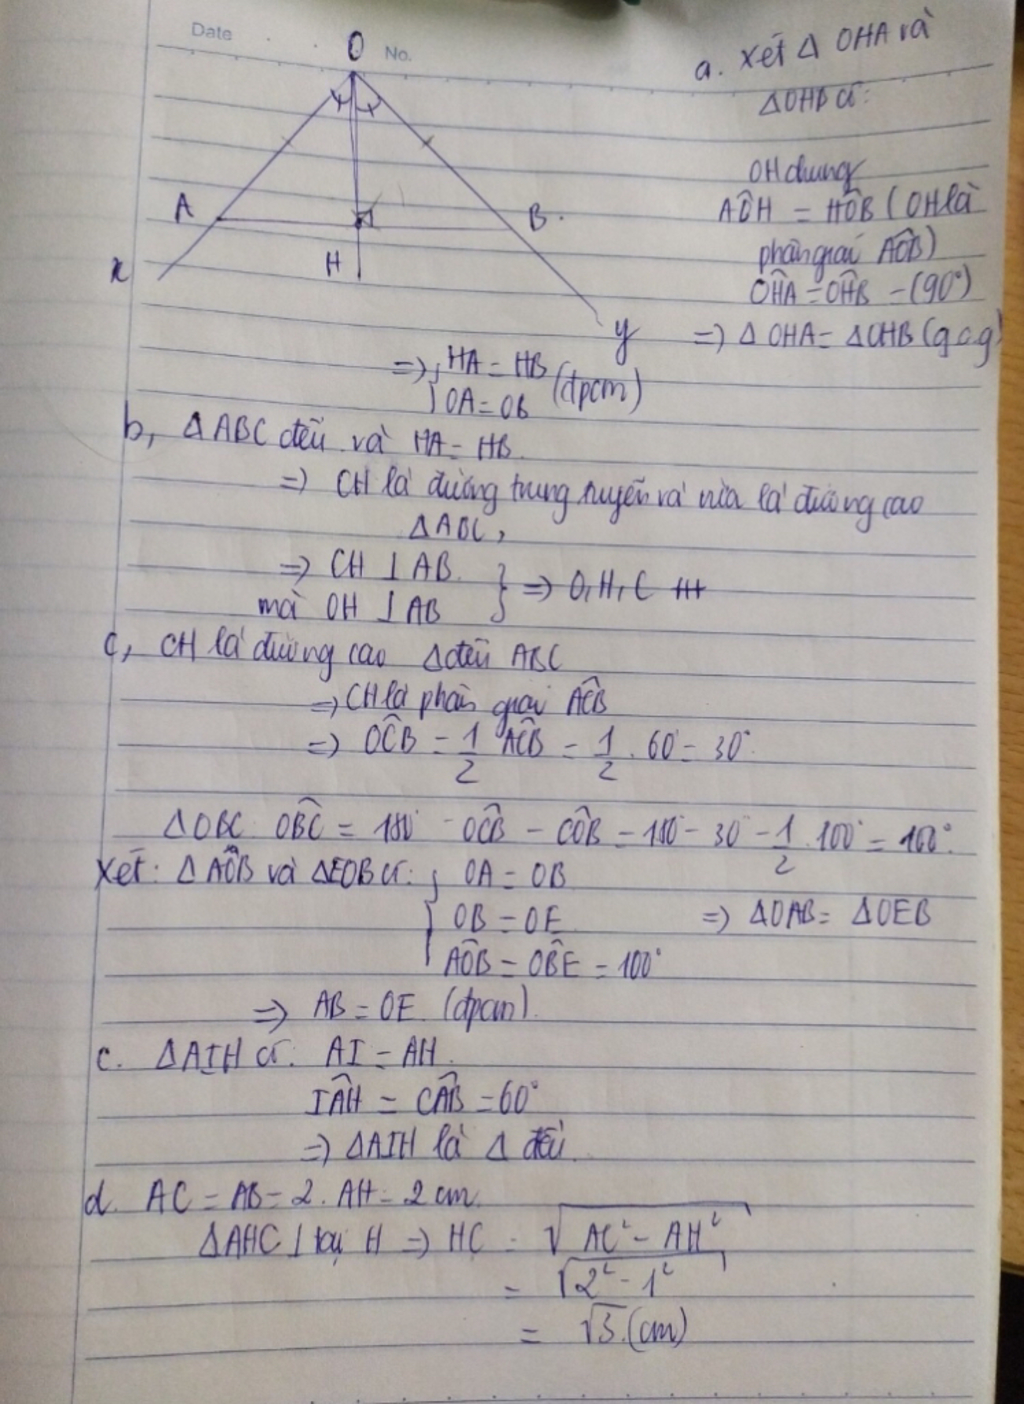 Date No.
O
A
B
x
H
y
a. Xét Δ OHA và
ΔOHB có:
OH chung
AÔH = HÔB (OH là
phân giác AÔB)
OĤA = OĤB = (90°)
=> Δ OHA = ΔOHB (g.c.g)
=> { HA = HB
OA = OB (đpcm)
b, ΔABC đều và HA = HB.
=> CH là đường trung tuyến và vừa là đường cao
ΔABC,
=> CH ⊥ AB.
mà OH ⊥ AB } => O, H, C
c, CH là đường cao Δ đều ABC
=> CH là phân giác AĈB
=> OĈB = 1/2 AĈB = 1/2 . 60° = 30°.
ΔOBC OB̂C = 180° - OĈB - CÔB = 180° - 30° - 1/2 . 100° = 100°.
Xét: Δ AÔB và ΔEOB có: { OA = OB
OB = OE => ΔOAB = ΔOEB
AÔB = OB̂E = 100°
=> AB = OE (đpcm).
c. ΔAIH có: AI = AH.
IÂH = CÂB = 60°
=> ΔAIH là Δ đều.
d. AC = AB = 2. AH = 2 cm.
ΔAHC ⊥ tại H => HC = √AC² - AH²
= √2² - 1²
= √3 (cm)